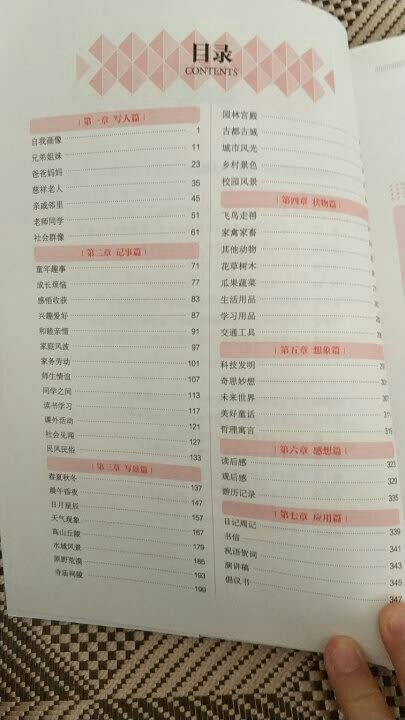 目录
CONTENTS
第一章 写人篇
自我画像 1
兄弟姐妹 11
爸爸妈妈 23
慈祥老人 35
亲戚邻里 45
老师同学 51
社会群像 61
第二章 记事篇
童年趣事 71
成长烦恼 77
感悟收获 83
兴趣爱好 87
和睦亲情 91
家庭风波 97
家务劳动 101
师生情谊 107
同学之间 113
读书学习 117
课外活动 121
社会见闻 127
民风民俗 133
第三章 写景篇
春夏秋冬 137
晨午昏夜 147
日月星辰 157
天气现象 167
高山丘陵 179
水域风景 185
原野荒漠 193
寺庙祠陵 199
园林宫殿
古都古城
城市风光
乡村景色
校园风景
第四章 状物篇
飞鸟走兽
家禽家畜
其他动物
花草树木
瓜果蔬菜
生活用品
学习用品
交通工具
第五章 想象篇
科技发明
奇思妙想 301
未来世界 307
美好童话 311
哲理寓言 315
第六章 感想篇
读后感 323
观后感 329
游历记录 335
第七章 应用篇
日记周记 339
书信 341
祝语贺词 343
演讲稿 345
倡议书 347